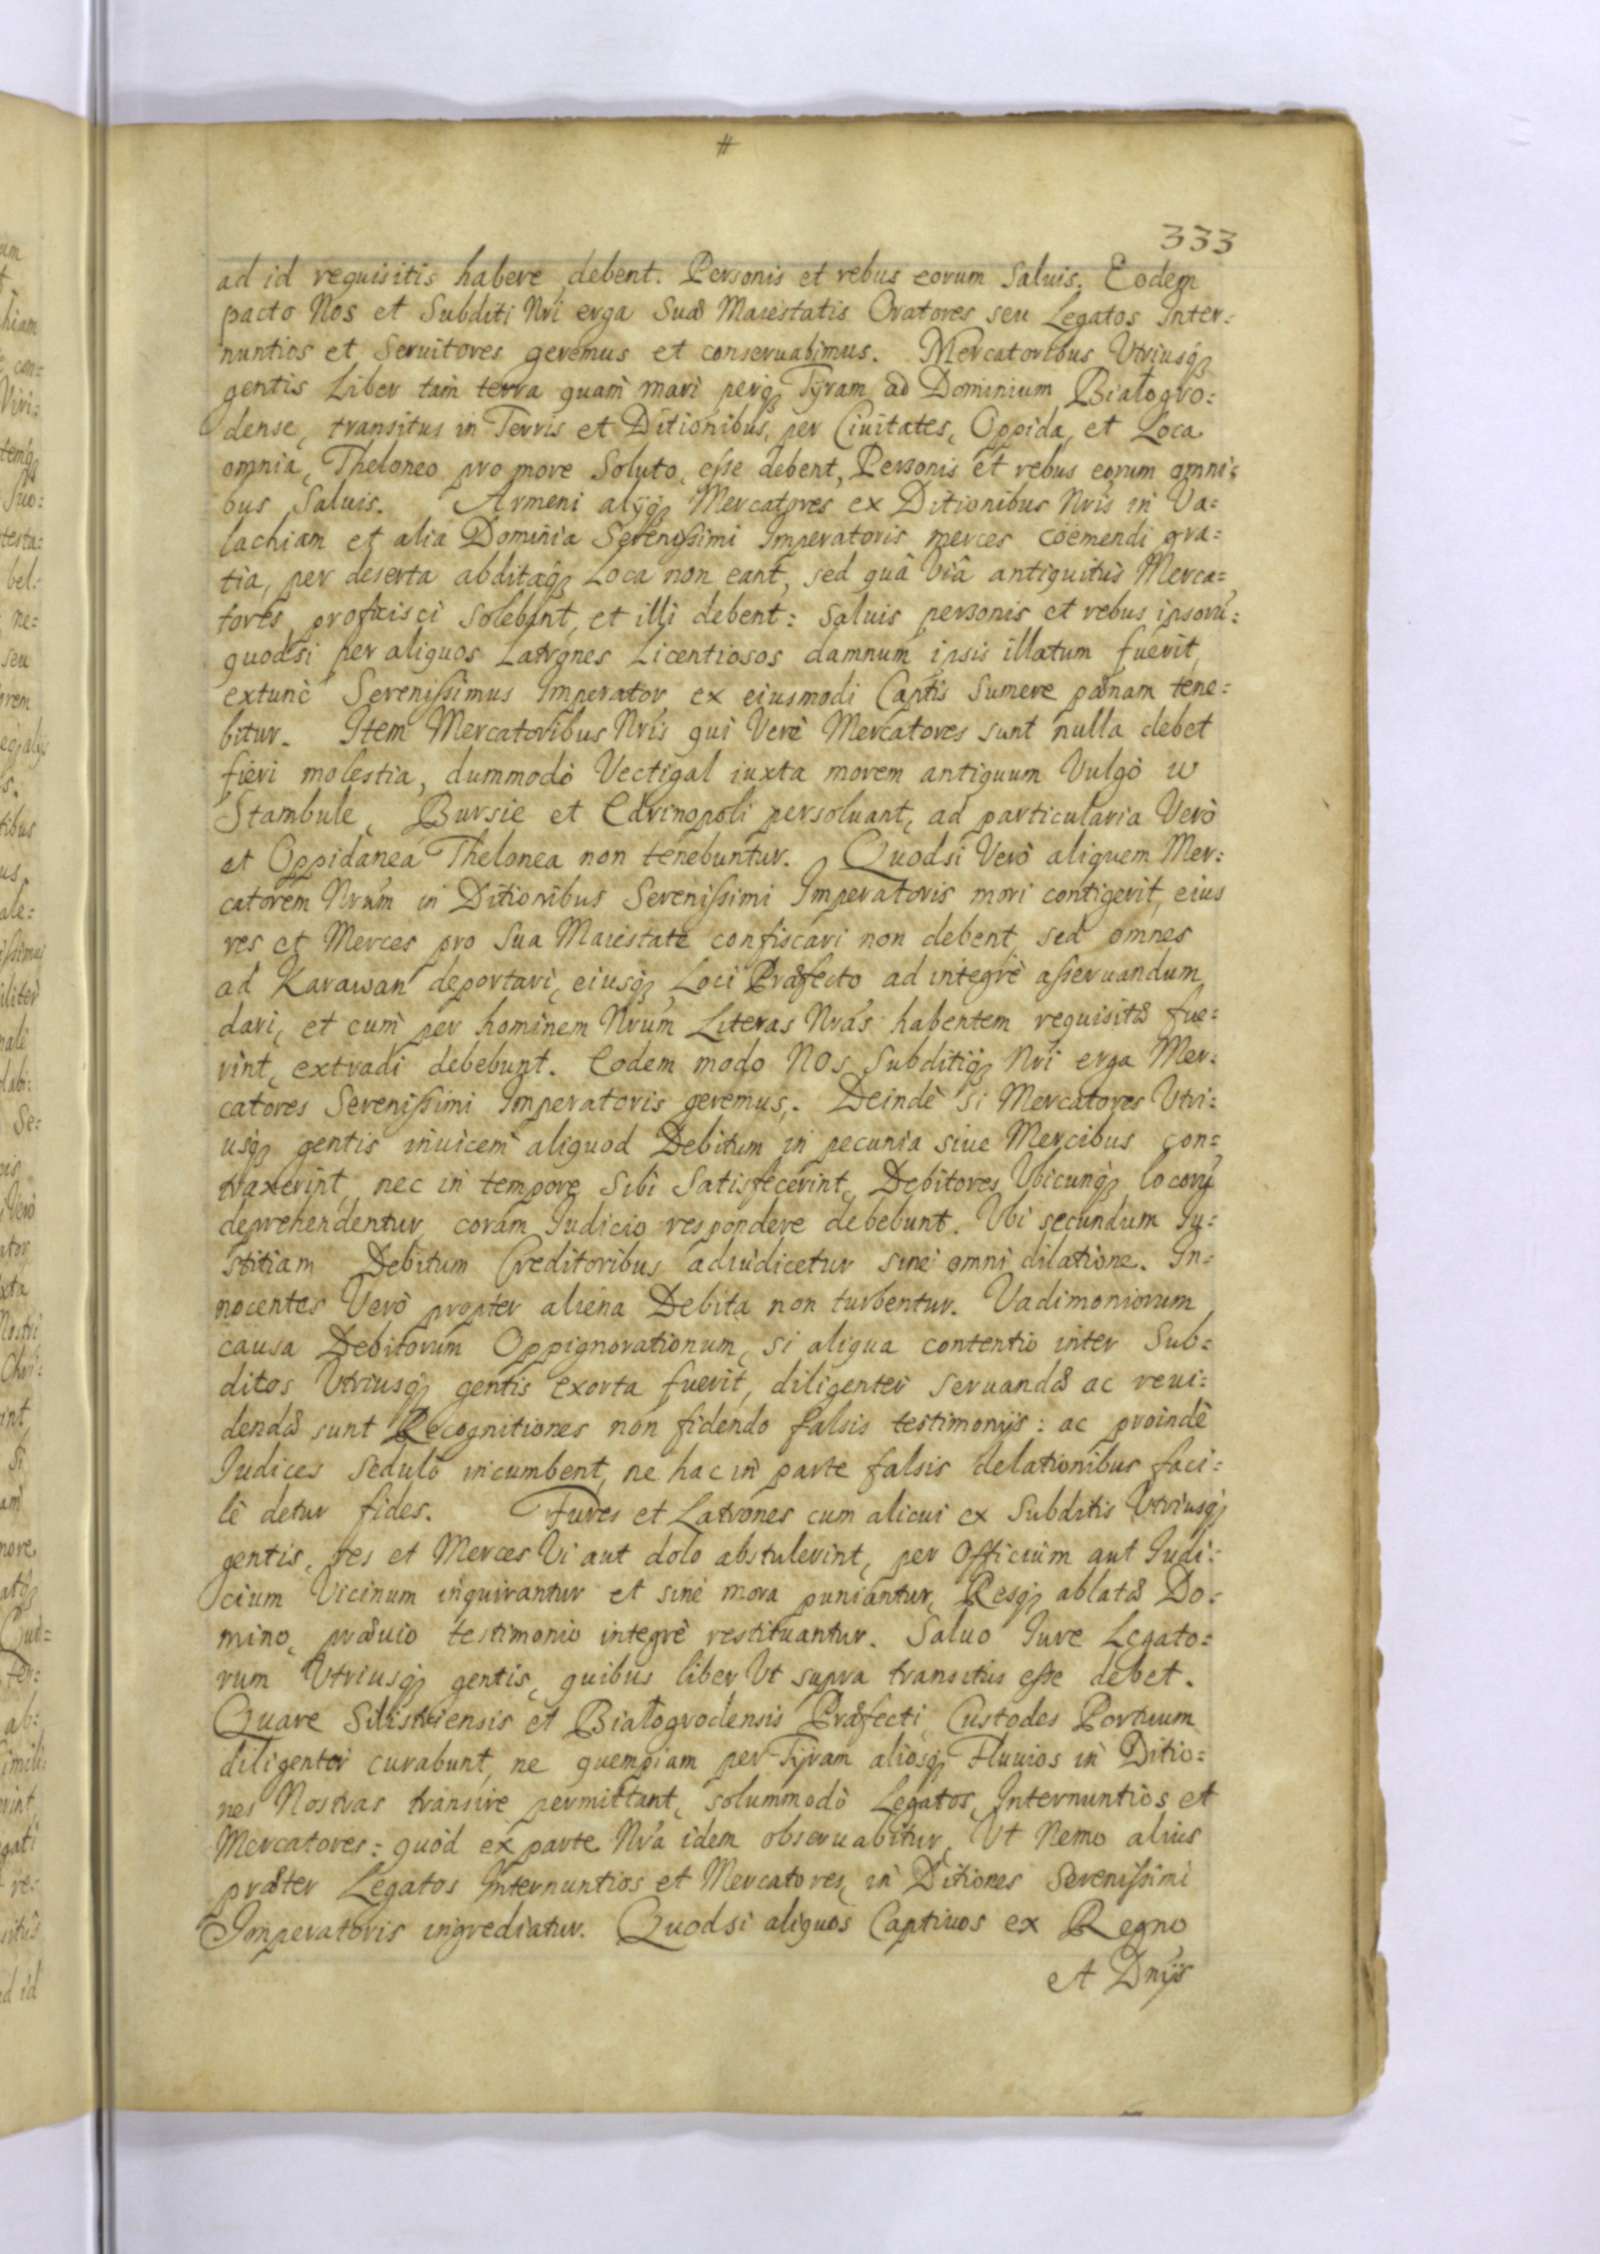 #
333
ad id requisitis habere debent. Personis et rebus eorum saluis. Eodem
pacto Nos et Subditi Nri erga Suæ Maiestatis Oratores seu Legatos Inter=
nuntios et Seruitores geremus et conseruabimus. Mercatoribus Vtriusq3
gentis Liber tàm terra quam mari perq3 Tyram ad Dominium Białogro=
dense, transitus in Terris et Ditionibus, per Ciuitates, Oppida, et Loca
omnia, Theloneo pro more Soluto, esse debent, Personis et rebus eorum omni=
bus Saluis. Armeni alyq3 Mercatores ex Ditionibus Nris in Va=
lachiam et alia Dominia Serenissimi Imperatoris merces coëmendi gra=
tia, per deserta abditaq3 Loca non eant, sed quâ Viâ antiquitùs Merca=
tores proficisci solebant, et illi debent: saluis personis et rebus ipsorũ:
quodsi per aliquos Latrones Licentiosos damnum ipsis illatum fuerit,
extunc Serenissimus Imperator ex eiusmodi Captis sumere pænam tene=
bitur. Item Mercatoribus Nris qui Verè Mercatores sunt nulla debet
fieri molestia, dummodò Vectigal iuxta morem antiquum Vulgò w
Stambule, Bursie et Edrinopoli persoluant, ad particularia Verò
et Oppidanea Thelonea non tenebuntur. Quodsi Verò aliquem Mer=
catorem Nrum in Ditionibus Serenissimi Imperatoris mori contigerit, eius
res et Merces pro Sua Maiestate confiscari non debent, sed omnes
ad Karawan deportari, eiusq3 Loci Præfecto ad integrè asseruandum
dari, et cum per hominem Nrum Literas Nras habentem requisitæ fue=
rint, extradi debebunt. Eodem modo NOs Subditiq3 Nri erga Mer=
catores Serenissimi Imperatoris geremus. Deindè si Mercatores Vtri=
usq3 gentis inuicem aliquod Debitum in pecunia siue Mercibus con=
traxerint, nec in tempore Sibi Satisfecerint, Debitores Vbicunq3 locorũ
deprehendentur, coram Iudicio respondere debebunt. Vbi secundum Iu=
stitiam Debitum Creditoribus adiudicetur sine omni dilatione. In=
nocentes Verò propter aliena Debita non turbentur. Vadimoniorum
causa Debitorum Oppignorationum, si aliqua contentio inter Sub=
ditos Vtriusq3 gentis exorta fuerit, diligenter seruandæ ac reui=
dendæ sunt Recognitiones non fidendo falsis testimonijs: ac proindè
Iudices sedulò incumbent, ne hac in parte falsis delationibus faci=
lè detur fides. Fures et Latrones cum alicui ex Subditis Vtriusq3
gentis, res et Merces Vi aut dolo abstulerint, per Officium aut Iudi=
cium Vicinum inquirantur et sine mora puniantur, Resq3 ablatæ Do=
mino, præuio testimonio integrè restituantur. Saluo Iure Legato=
rum Vtriusq3 gentis, quibus liber Vt supra transitus esse debet.
Quare Silistriensis et Białogrodensis Præfecti, Custodes Portuum
diligenter curabunt, ne quempiam per Tyram aliosq3 Fluuios in Ditio=
nes Nostras transire permittant, solummodò Legatos, Internuntios et
Mercatores: quòd ex parte Nra idem obseruabitur, Vt nemo alius
præter Legatos Internuntios et Mercatores, in Ditiones Serenissimi
Imperatoris ingrediatur. Quodsi aliquos Captiuos ex Regno
et Dnijs